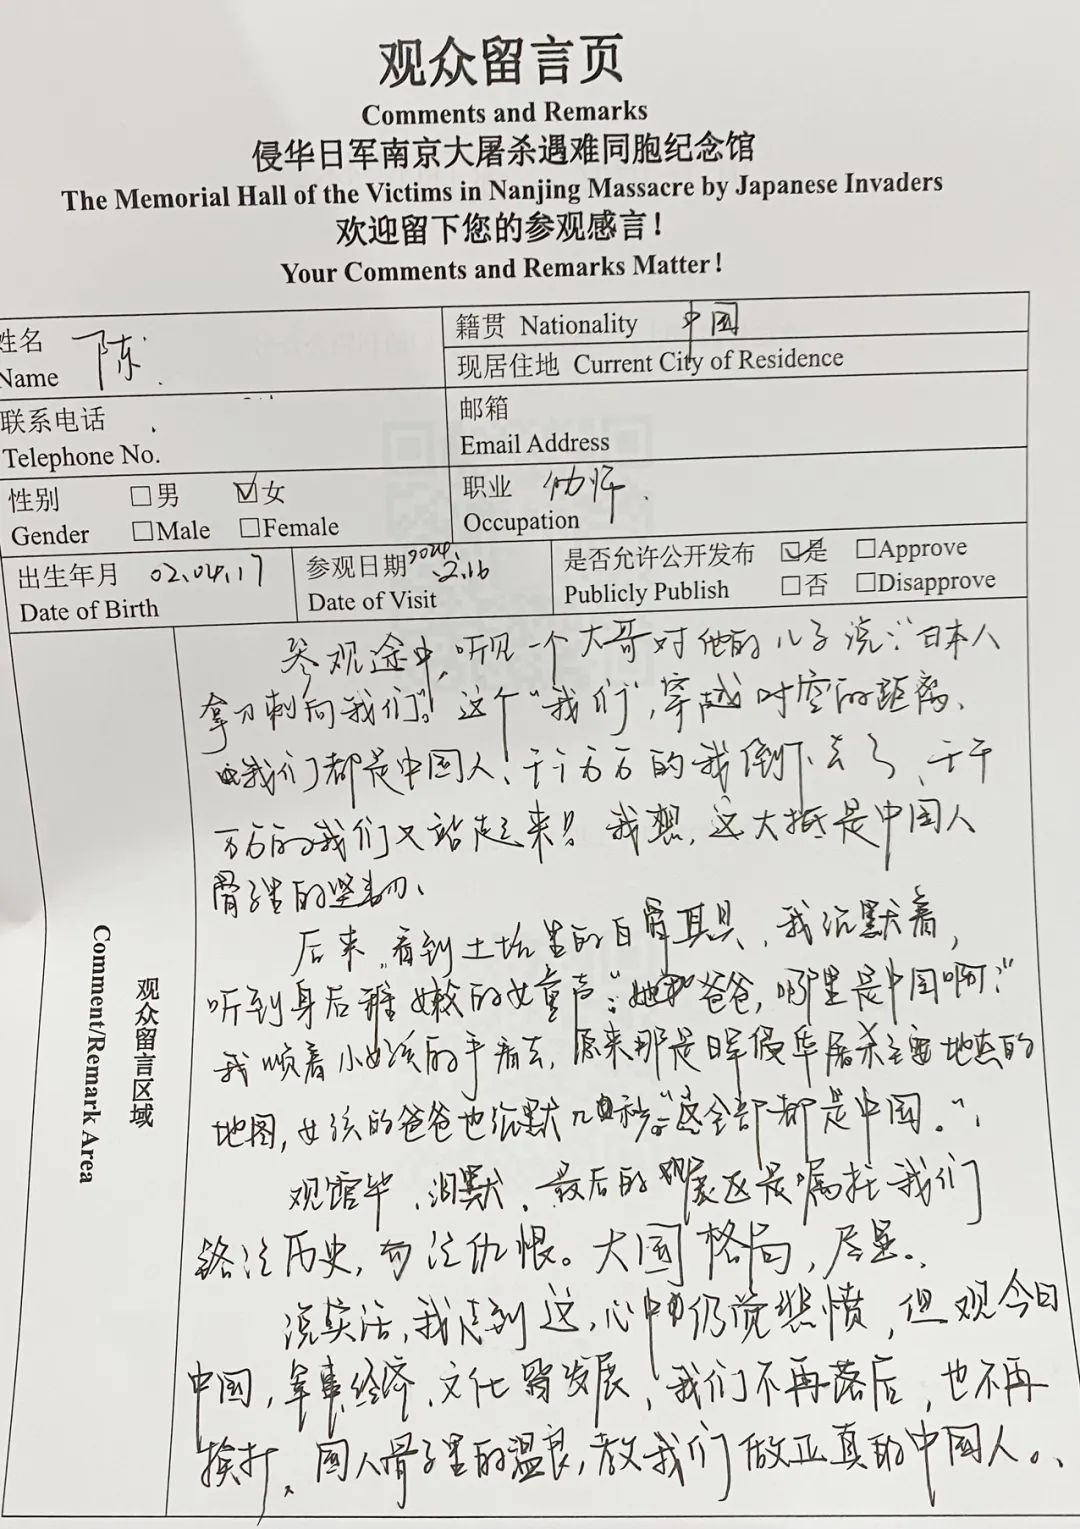 观众留言页
Comments and Remarks
侵华日军南京大屠杀遇难同胞纪念馆
The Memorial Hall of the Victims in Nanjing Massacre by Japanese Invaders
欢迎留下您的参观感言！
Your Comments and Remarks Matter!
姓名 陈
Name
籍贯 Nationality 中国
现居住地 Current City of Residence
联系电话
Telephone No.
邮箱
Email Address
性别 □男 ☑女
Gender □Male □Female
职业 幼师
Occupation
出生年月 02.04.17
Date of Birth
参观日期 2024.2.16
Date of Visit
是否允许公开发布 ☑是 □Approve
Publicly Publish □否 □Disapprove
观众留言区域
Comment/Remark Area
参观途中，听见一个大哥对他的儿子说："日本人
拿刀刺向我们"。这个"我们"，穿越时空的距离、
我们都是中国人！千千万万的我倒下去了、千千
万万的我们又站起来！我想，这大抵是中国人
骨子里的坚韧、
后来，看到土坑里的白骨，我沉默着，
听到身后稚嫩的女童声："爸爸，哪里是中国啊？"
我顺着小女孩的手看去，原来那是日军侵华屠杀主要地点的
地图，女孩的爸爸也沉默几秒："这全部都是中国。"
观馆毕、泪默、最后的展区是嘱托我们
铭记历史，勿记仇恨。大国格局，尽显、
说实话，我走到这，心中仍觉悲愤，但观今日
中国，军事、经济、文化皆发展，我们不再落后，也不再
挨打、国人骨子里的温良，教我们做正真的中国人。